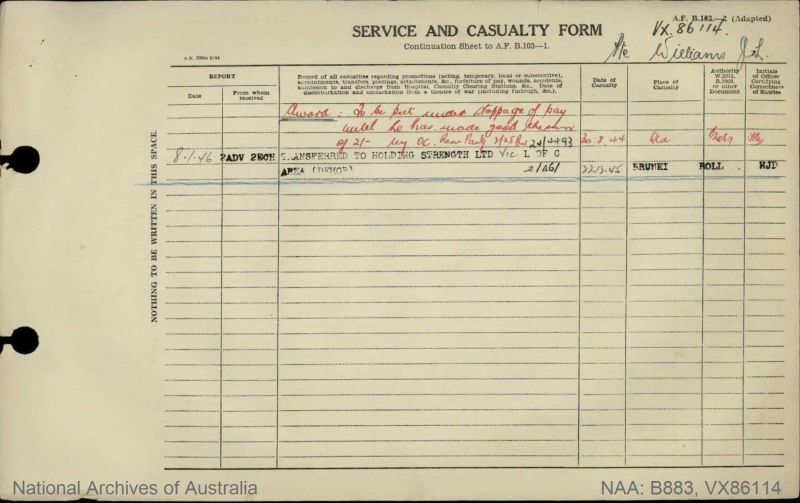 A.F. B.103.—2 (Adapted)
VX.86114.
SERVICE AND CASUALTY FORM
Pte Williams J.L.
Continuation Sheet to A.F. B.103—1.
REPORT
Date
From whom received
Record of all casualties regarding promotions (acting, temporary, local or substantive), appointments, transfers, postings, attachments, &c., forfeiture of pay, wounds, accidents, admission to and discharge from Hospital, Casualty Clearing Stations, &c. Date of disembarkation and embarkation from a theatre of war (including furlough, &c.).
Date of Casualty
Place of Casualty
Authority W.3011, B.2069, or other Document
Initials of Officer Certifying Correctness of Entries
NOTHING TO BE WRITTEN IN THIS SPACE
Award: To be put under stoppage of pay
until he has made good the sum
of 2/- by OC. Rear Party 2/25 Bn 24/4493 30.8.44 Qld
8.1.46 2ADV 2ECH TRANSFERRED TO HOLDING STRENGTH LTD Vic L OF C
AREA (DEMOB) 2/46/ 22.12.45 BRUNEI ROLL HJD
National Archives of Australia
NAA: B883, VX86114